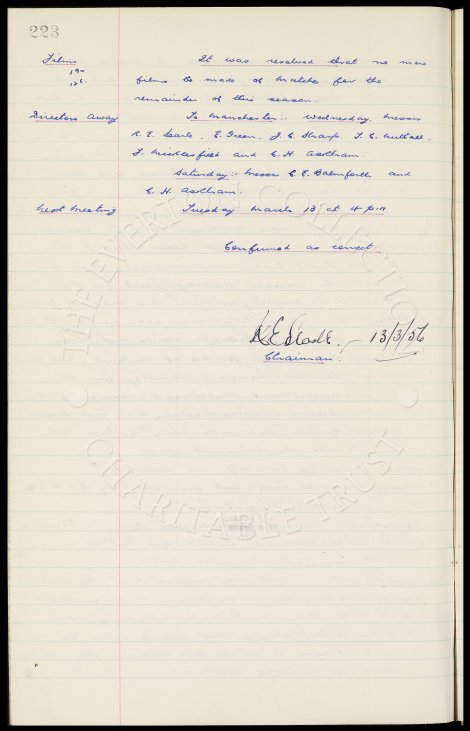 223
Films
It was resolved that no more
films be made of matches for the
remainder of this season.
Directors Away
To Manchester:- Wednesday, Messrs
R. E. Searle, E. Green, J. C. Sharp, F. C. Nuttall,
F. Micklesfield and C. H. Askham.
Saturday:- Messrs C. E. Balmforth and
C. H. Askham.
Next Meeting
Tuesday March 13 at 4 p.m
Confirmed as correct
R E Searle. 13/3/56
Chairman.
THE EVERTON COLLECTION
CHARITABLE TRUST